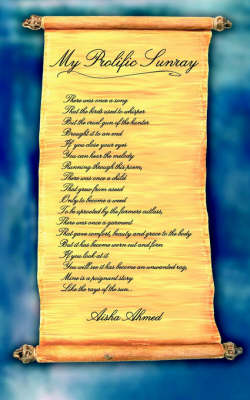 My Prolific Sunray
There was once a song
That the birds used to whisper
But the cruel gun of the hunter
Brought it to an end
If you close your eyes
You can hear the melody
Running through this poem,
There was once a child
That grew from aseed
Only to become a weed
To be uprooted by the farmers cutlass,
There was once a garment
That gave comfort, beauty and grace to the body
But it has become worn out and torn
If you look at it
You will see it has become an unwanted rag,
Mine is a poignant story
Like the rays of the sun...
Aisha Ahmed